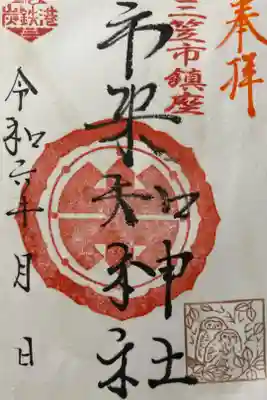 奉拝
三笠市鎮座
市来知神社
炭鉄港
令和六年 月 日